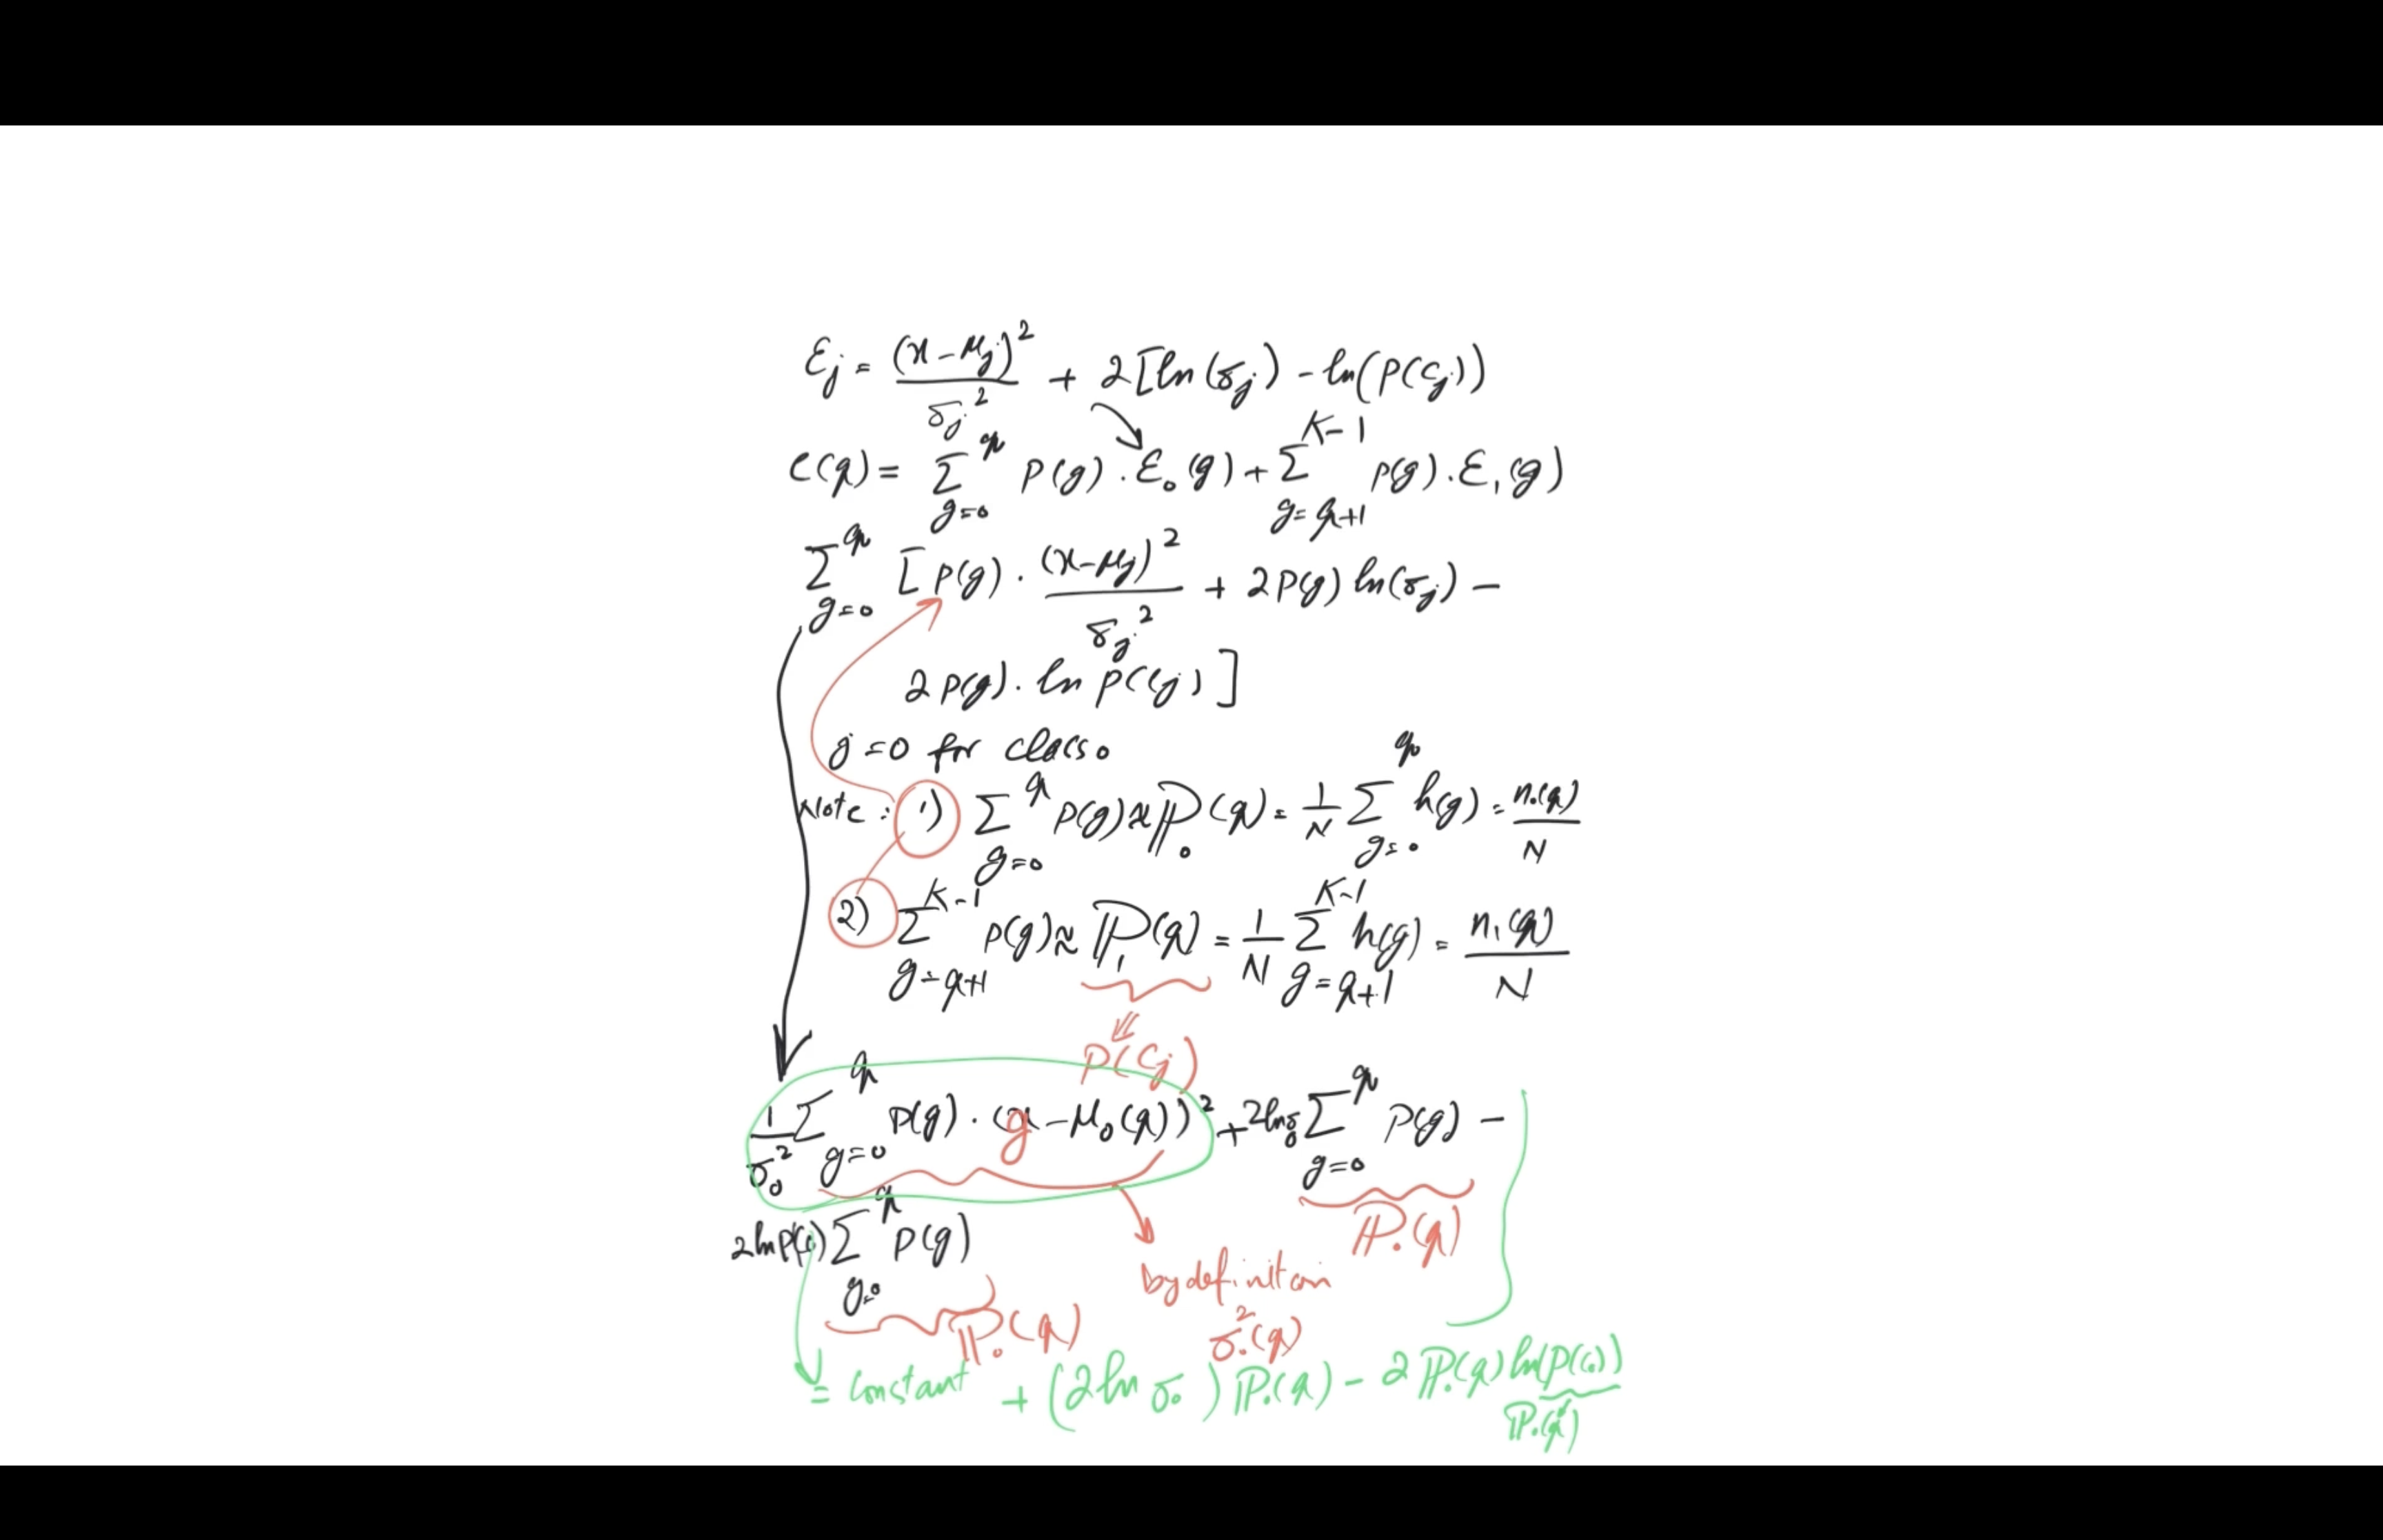 ε_j = (x - μ_j)² / σ_j² + 2[ln(σ_j) - ln(P(C_j))
e(q) = Σ_{g=0}^{q} p(g) · ε₀(g) + Σ_{g=q+1}^{K-1} p(g) · ε₁(g)
Σ_{g=0}^{q} [p(g) · (x - μ_j)² / σ_j² + 2p(g) ln(σ_j) -
2 p(g) · ln p(C_j)]
j = 0 for class 0
Note: 1) Σ_{g=0}^{q} p(g) ≈ ℙ₀(q) = 1/N Σ_{g=0}^{q} h(g) = n₀(q)/N
2) Σ_{g=q+1}^{K-1} p(g) ≈ ℙ₁(q) = 1/N Σ_{g=q+1}^{K-1} h(g) = n₁(q)/N
P(C_j)
1/σ₀² Σ_{g=0}^{q} p(g) · (g - μ₀(q))² + 2lnσ₀ Σ_{g=0}^{q} p(g) -
ℙ₀(q)
2ln P(C₀) Σ_{g=0}^{q} p(g)
ℙ₀(q)
by definition
σ₀²(q)
= constant + (2 ln σ₀) ℙ₀(q) - 2 ℙ₀(q) ln(P(C₀))
ℙ₀(q)